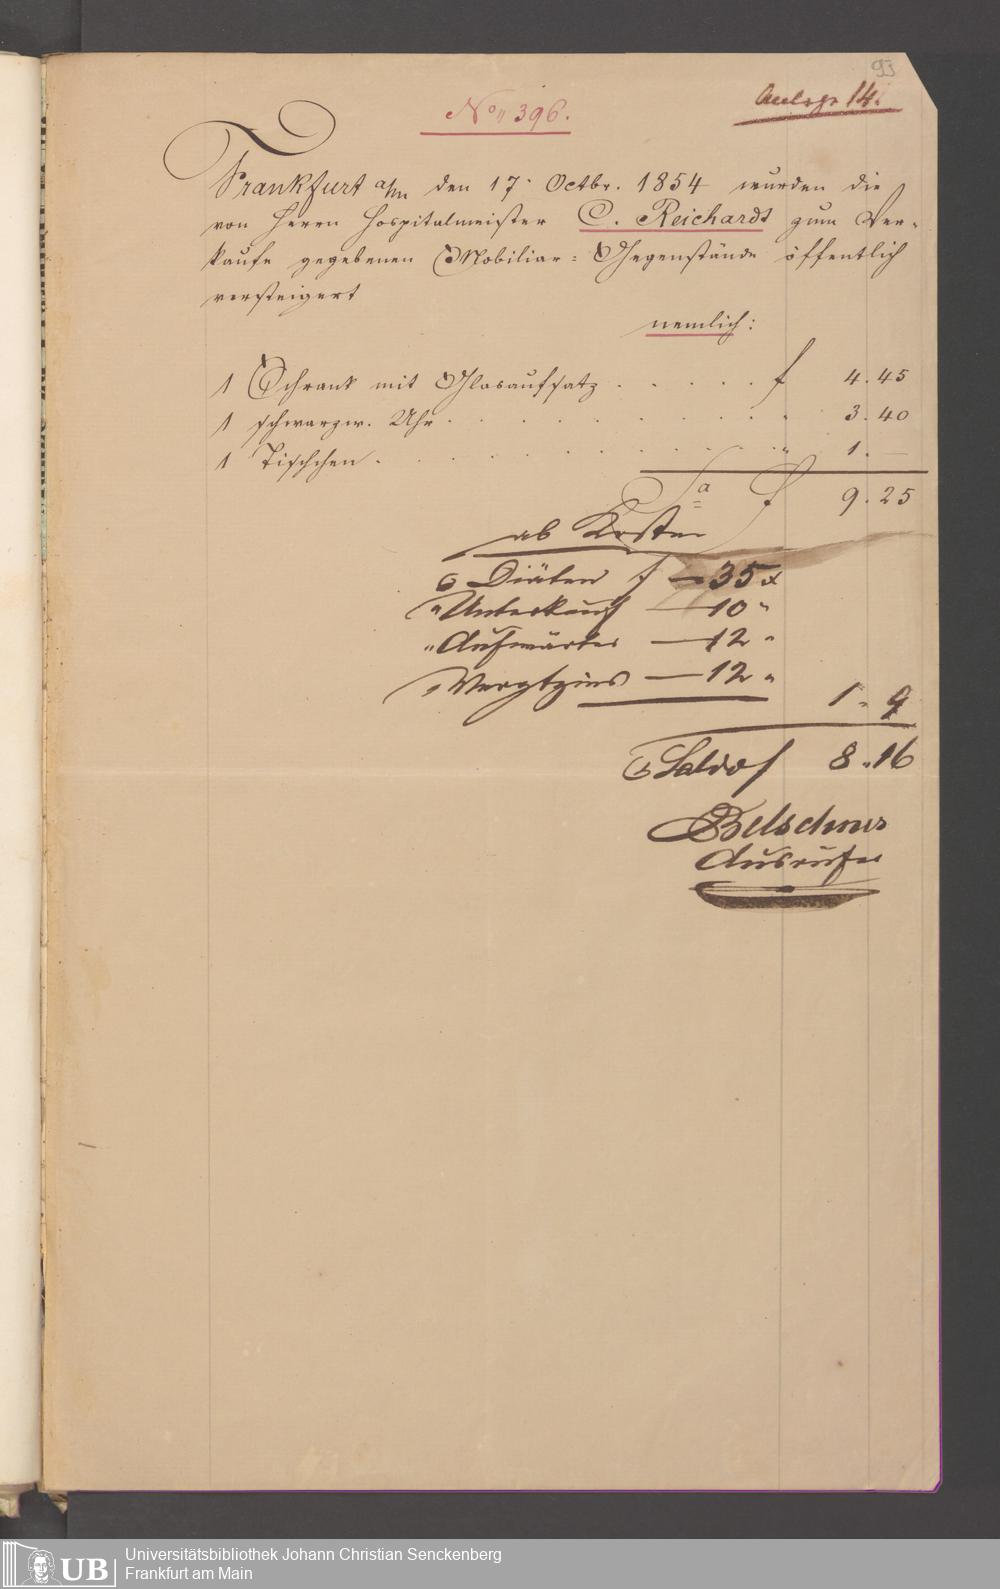 93
Anlage 14.
No 396.
Frankfurt a/m den 17. Octbr. 1854 wurden die
von Herrn Hospitalmeister C. Reichardt zum Ver-
kaufe gegebenen Mobiliar-Gegenstände öffentlich
versteigert
nemlich:
1 Schrank mit Glasaufsatz . . . . . f 4. 45
1 schwarzw. Uhr . . . . . . . " 3. 40
1 Tischchen . . . . . . . . " 1. —
Sa f 9. 25
ab Kosten
Diäten f — 35 x
" Unterkauf — 10 "
" Aufwärter — 12 "
" — 12 "
1 " 9
Saldo f 8 " 16
Belschner
Ausrufer
UB
Universitätsbibliothek Johann Christian Senckenberg
Frankfurt am Main